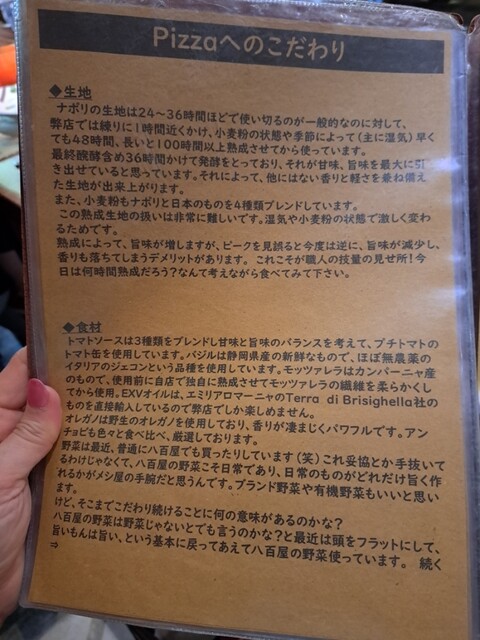 Pizzaへのこだわり
◆生地
ナポリの生地は24～36時間ほどで使い切るのが一般的なのに対して、
弊店では練りに1時間近くかけ、小麦粉の状態や季節によって(主に湿気)早く
ても48時間、長いと100時間以上熟成させてから使っています。
最終醗酵含め36時間かけて発酵をとっており、それが甘味、旨味を最大に引
き出せていると思っています。それによって、他にはない香りと軽さを兼ね備え
た生地が出来上がります。
また、小麦粉もナポリと日本のものを4種類ブレンドしています。
この熟成生地の扱いは非常に難しいです。湿気や小麦粉の状態で激しく変わ
るためです。
熟成によって、旨味が増しますが、ピークを見誤ると今度は逆に、旨味が減少し、
香りも落ちてしまうデメリットがあります。これこそが職人の技量の見せ所!今
日は何時間熟成だろう?なんて考えながら食べてみて下さい。
◆食材
トマトソースは3種類をブレンドし甘味と旨味のバランスを考えて、プチトマトの
トマト缶を使用しています。バジルは静岡県産の新鮮なもので、ほぼ無農薬の
イタリアのジェコンという品種を使用しています。モッツァレラはカンパーニャ産
のもので、使用前に自店で独自に熟成させてモッツァレラの繊維を柔らかくし
てから使用。EXVオイルは、エミリアロマーニャのTerra di Brisighella社の
ものを直接輸入しているので弊店でしか楽しめません。
オレガノは野生のオレガノを使用しており、香りが凄まじくパワフルです。アン
チョビも色々と食べ比べ、厳選しております。
野菜は最近、普通に八百屋でも買ったりしています(笑)これ妥協とか手抜いて
るわけじゃなくて、八百屋の野菜こそ日常であり、日常のものがどれだけ旨く作
れるかがメシ屋の手腕だと思うんです。ブランド野菜や有機野菜もいいと思い
ます。
けど、そこまでこだわり続けることに何の意味があるのかな?
八百屋の野菜は野菜じゃないとでも言うのかな?と最近は頭をフラットにして、
旨いもんは旨い、という基本に戻ってあえて八百屋の野菜使っています。 続く
⇒